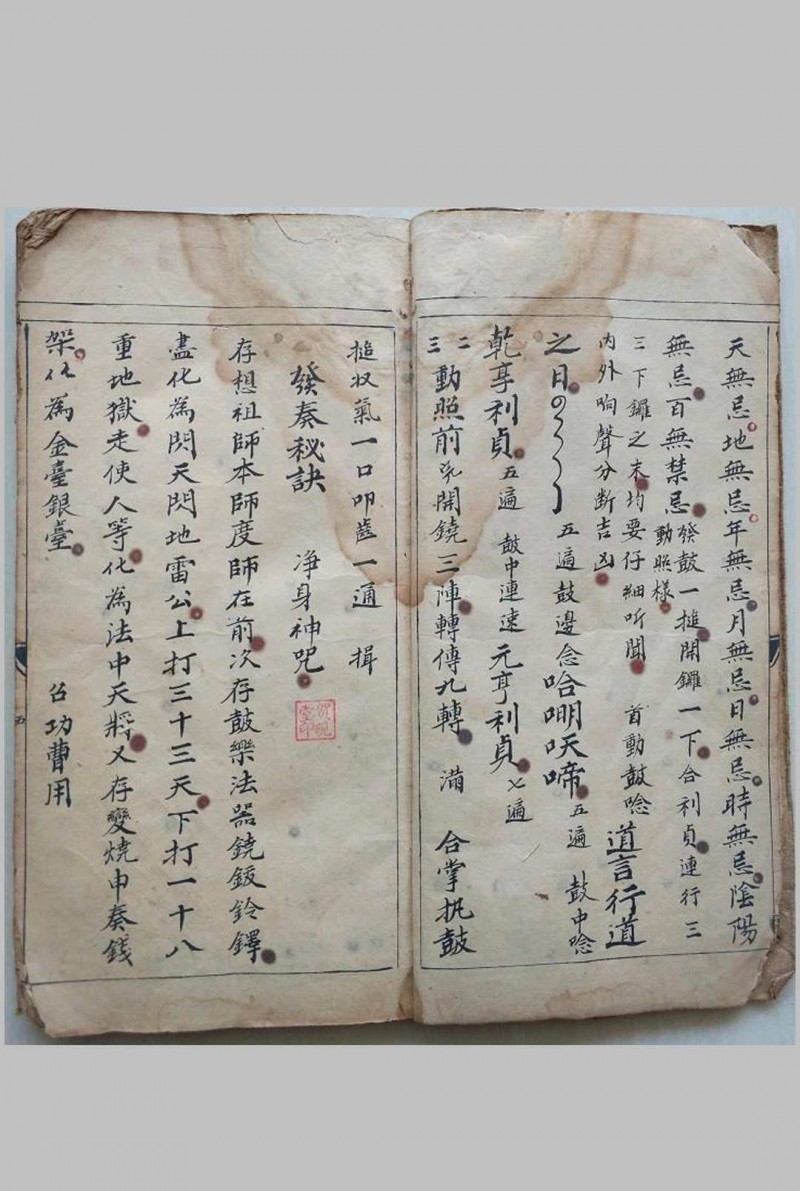 天無忌地無忌年無忌月無忌日無忌時無忌陰陽
無忌百無禁忌發鼓一搥開鑼一下合利貞連行三
動照樣
三下鑼之末均要仔細听聞 首動鼓唸道言行道
內外响聲分断吉凶
之日 五遍鼓邊念哈㗃㕭啼五遍 鼓中唸
乾亨利貞五遍 鼓中連速 元亨利貞七遍
二三動照前 開鐃三陣轉傳九轉 滿 合掌执鼓
搥収氣一口叩齒一通 揖
發奏秘訣 净身神咒
賀硯堂印
存想祖師本師度師在前次存鼓樂法器鐃鈸鈴鐸
盡化為閃天閃地雷公上打三十三天下打一十八
重地獄走使人等化為法中天將又存變燒申奏錢
架化為金臺銀臺 召功曹用
五